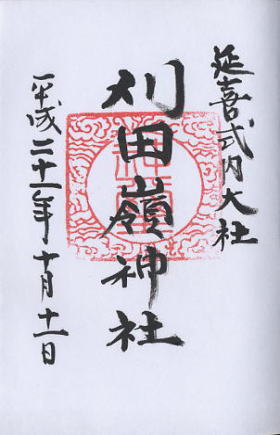 延喜式内大社
刈田嶺神社
平成二十一年十月十一日